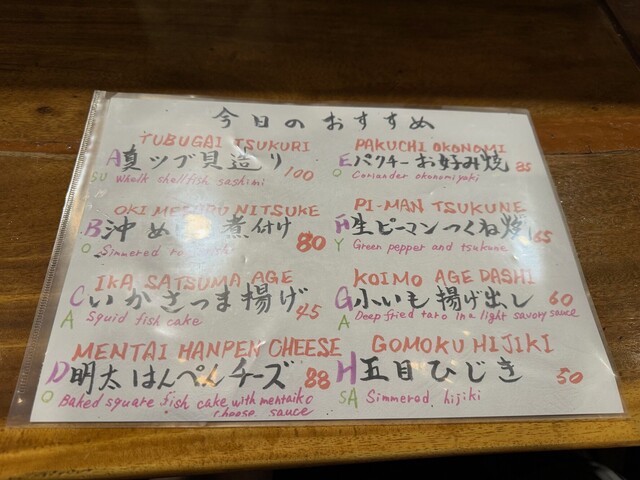 今日のおすすめ
TUBUGAI TSUKURI
A 真ツブ貝造り 100
SU Whelk shellfish sashimi
OKI NITSUKE
B 沖め 煮付け 80
O Simmered
IKA SATSUMA AGE
C いかさつま揚げ 45
A Squid fish cake
MENTAI HANPEN CHEESE
D 明太はんぺんチーズ 88
O Baked square fish cake with mentaiko
cheese sauce
PAKUCHI OKONOMI
E パクチーお好み焼 85
O Coriander okonomiyaki
PI-MAN TSUKUNE
生ピーマンつくね焼 65
Y Green pepper and tsukune
KOIMO AGE DASHI
G 小いも揚げ出し 60
A Deep fried taro in a light savory sauce
GOMOKU HIJIKI
H 五目ひじき 50
SA Simmered hijiki